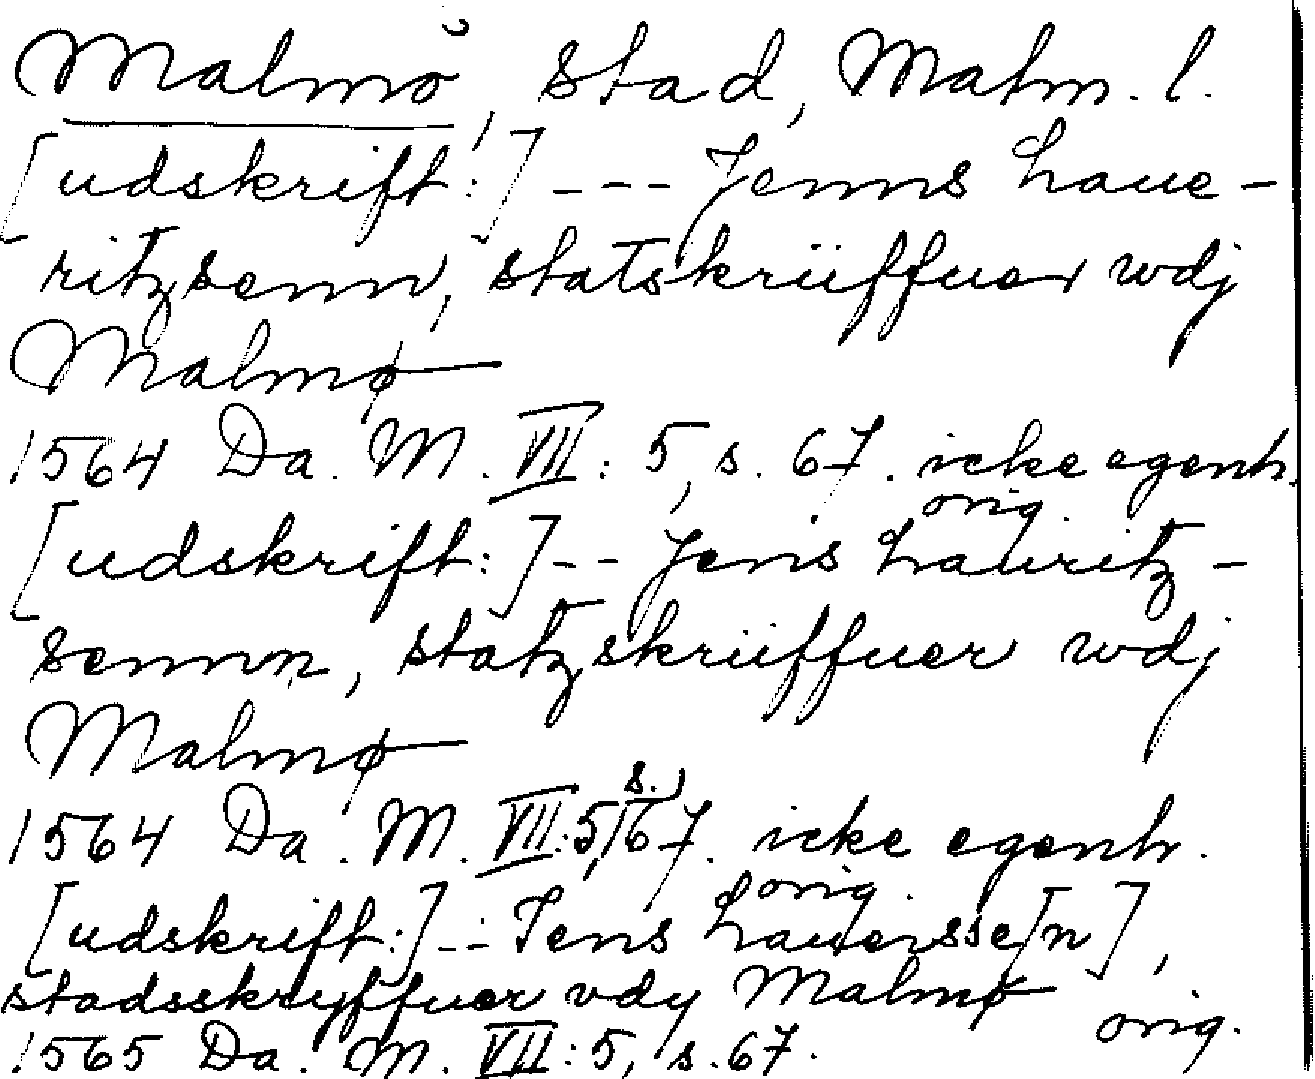 Malmö, stad, Malm. l.
[udskrift:] --- Jenns Laue-
ritzsenn, statskrüffuer wdj
Malmø
1564 Da. M. VII: 5, s. 67. icke egenh.
orig.
[udskrift:] -- Jens Lauritz-
sennn, statzskrüffuer wdj
Malmø
1564 Da. M. VII:5, s. 67. icke egenh.
orig.
[udskrift:] -- Jens Lauersse[n],
stadsskryffuer vdy Malmø
orig.
1565 Da. M. VII: 5, s. 67.